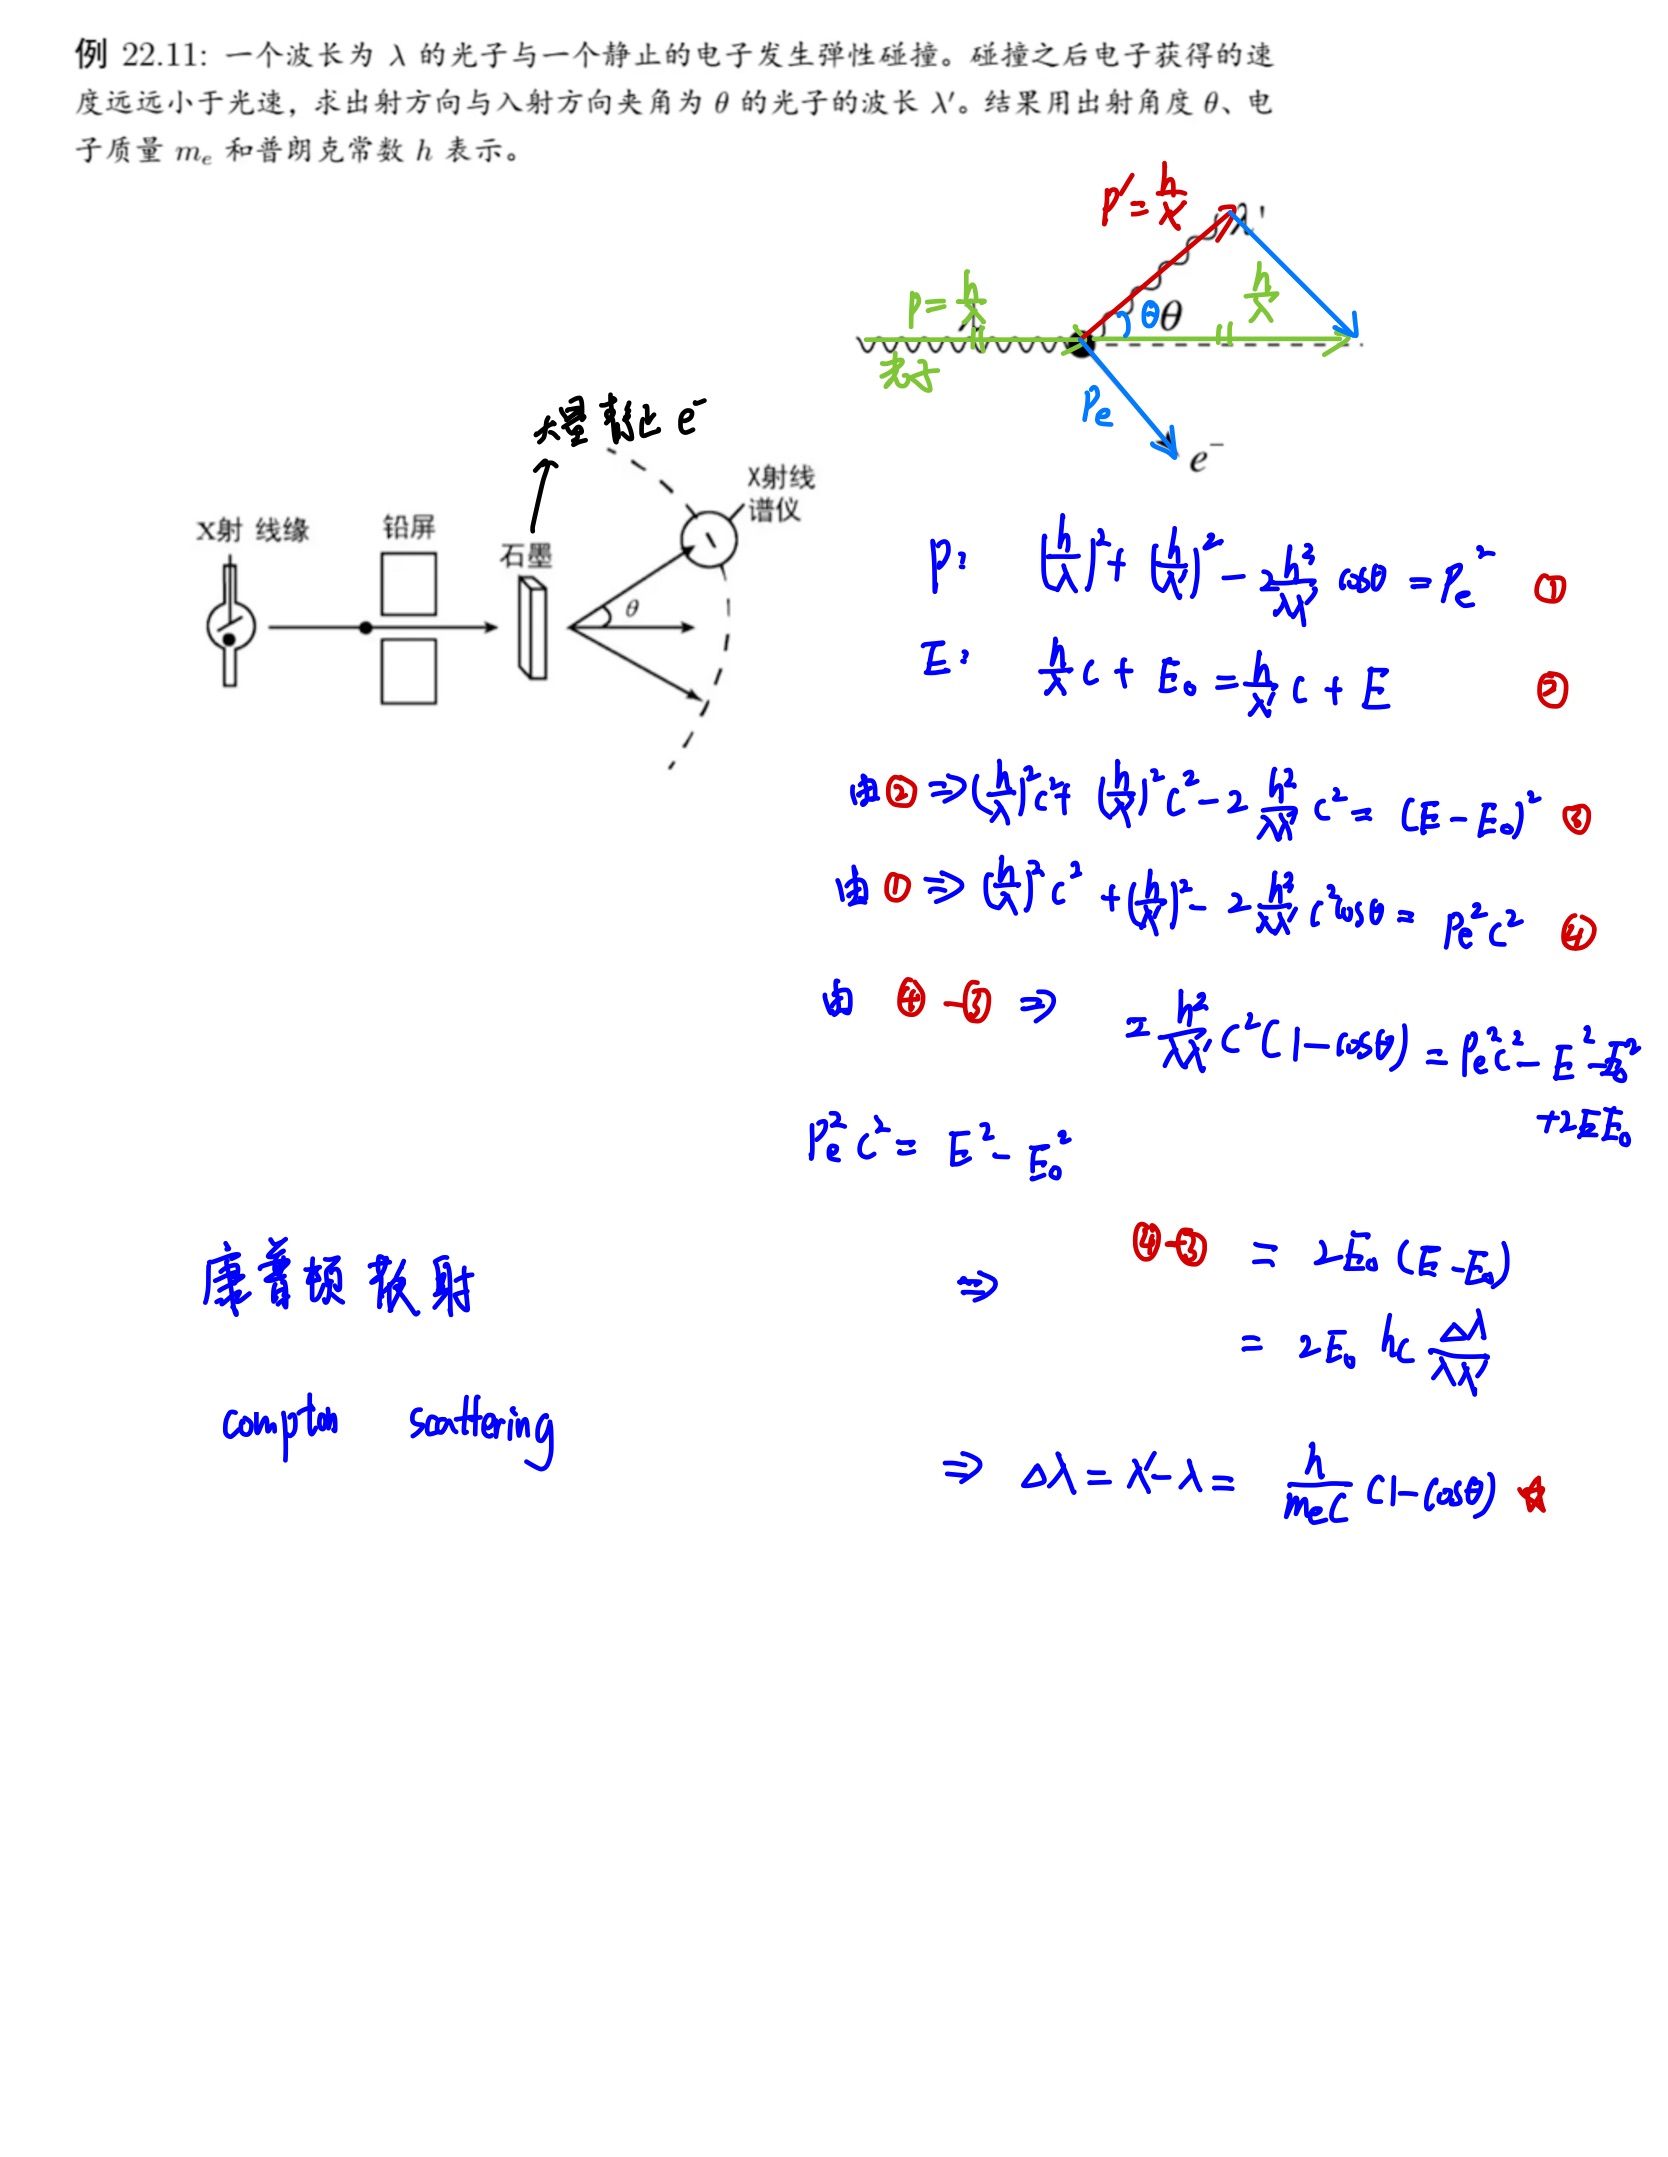 例 22.11: 一个波长为 λ 的光子与一个静止的电子发生弹性碰撞。碰撞之后电子获得的速
度远远小于光速，求出射方向与入射方向夹角为 θ 的光子的波长 λ′。结果用出射角度 θ、电
子质量 mₑ 和普朗克常数 h 表示。
p′ = h/λ′
λ'
p = h/λ
λ
光子
θ θ
h/λ
Pe
e⁻
大量静止 e⁻
X射 线缘
铅屏
石墨
X射线
谱仪
θ
P: (h/λ)² + (h/λ′)² − 2h²/λλ′ cosθ = Pe² ①
E: h/λ c + E₀ = h/λ′ c + E ②
由② ⇒ (h/λ)²c² + (h/λ′)²c² − 2 h²/λλ′ c² = (E − E₀)² ③
由① ⇒ (h/λ)²c² + (h/λ′)² − 2 h²/λλ′ c²cosθ = Pe²c² ④
由 ④ − ③ ⇒ 2 h²/λλ′ c²(1 − cosθ) = Pe²c² − E² − E₀²
+2EE₀
Pe²c² = E² − E₀²
⇒ ④−③ = 2E₀(E − E₀)
= 2E₀ hc Δλ/λλ′
⇒ Δλ = λ′ − λ = h/mec (1 − cosθ) ☆
康普顿散射
compton scattering